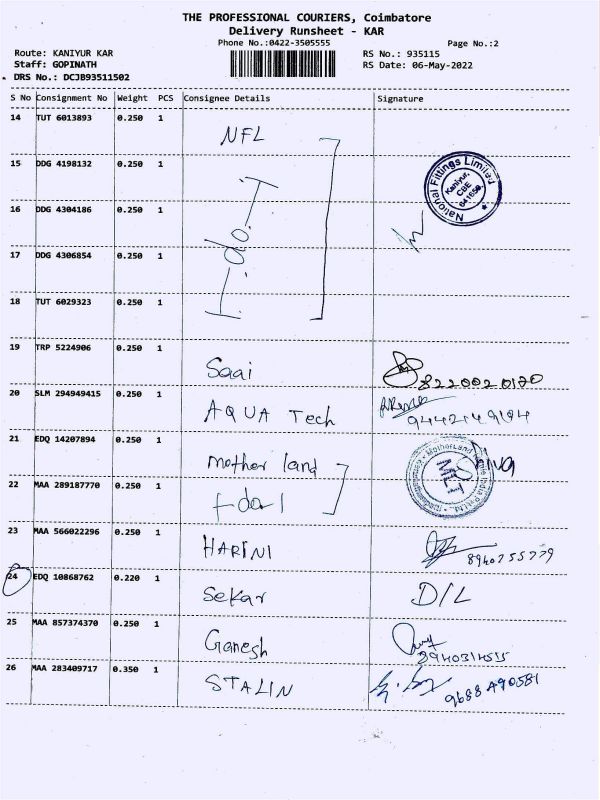 THE PROFESSIONAL COURIERS, Coimbatore
Delivery Runsheet - KAR
Phone No.:0422-3505555
Page No.:2
Route: KANIYUR KAR
RS No.: 935115
Staff: GOPINATH
RS Date: 06-May-2022
DRS No.: DCJB93511502
S No Consignment No Weight PCS Consignee Details Signature
14 TUT 6013893 0.250 1 NFL
15 DDG 4198132 0.250 1
National Fittings Limited
Kaniyur,
CBE
641659
16 DDG 4304186 0.250 1
17 DDG 4306854 0.250 1
18 TUT 6029323 0.250 1
19 TRP 5224906 0.250 1 Saai 8220020120
20 SLM 294949415 0.250 1 AQUA Tech 9442149194
21 EDQ 14207894 0.250 1 Mother land
22 MAA 289187770 0.250 1
23 MAA 566022296 0.250 1 HARINI 8940755779
24 EDQ 10868762 0.220 1 Sekar D/L
25 MAA 857374370 0.250 1 Ganesh 8940314515
26 MAA 283409717 0.350 1 STALIN 9688490581